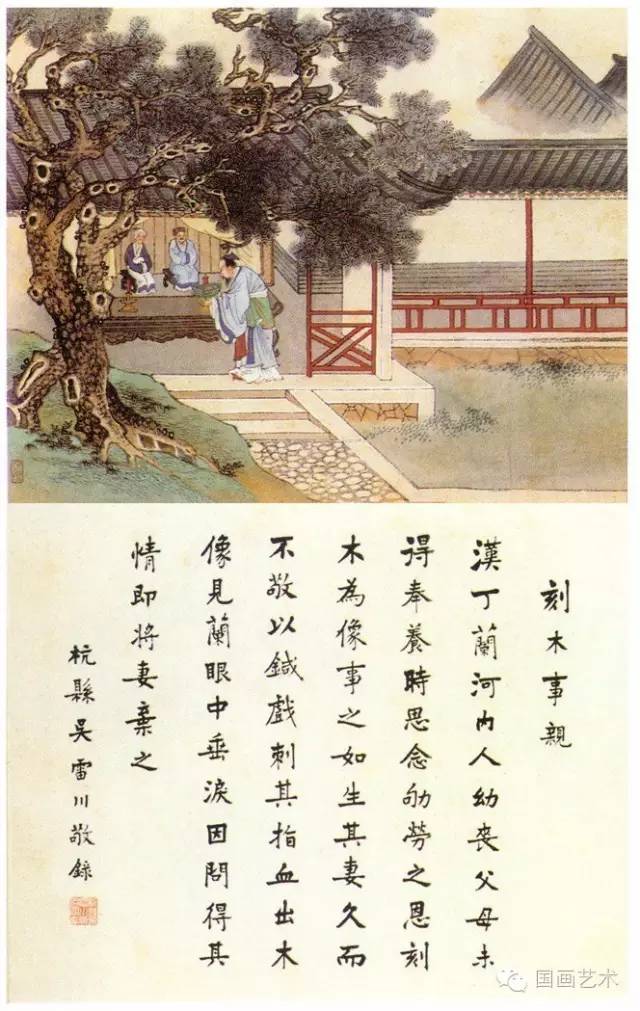 刻木事親
漢丁蘭河內人幼喪父母未
得奉養時思念劬勞之恩刻
木為像事之如生其妻久而
不敬以鍼戲刺其指血出木
像見蘭眼中垂淚因問得其
情即將妻棄之
杭縣吳雷川敬錄
国画艺术